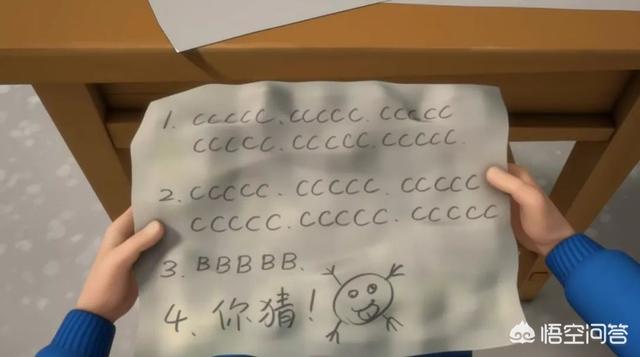 1. CCCCC. CCCCC. CCCCC
CCCCC. CCCCC. CCCCC.
2. CCCCC. CCCCC. CCCCC
CCCCC. CCCCC. CCCCC
3. BBBBB.
4. 你猜!
悟空问答